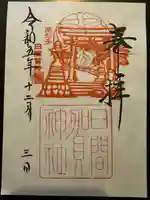 奉拝
日間賀神社
令和五年十二月三日